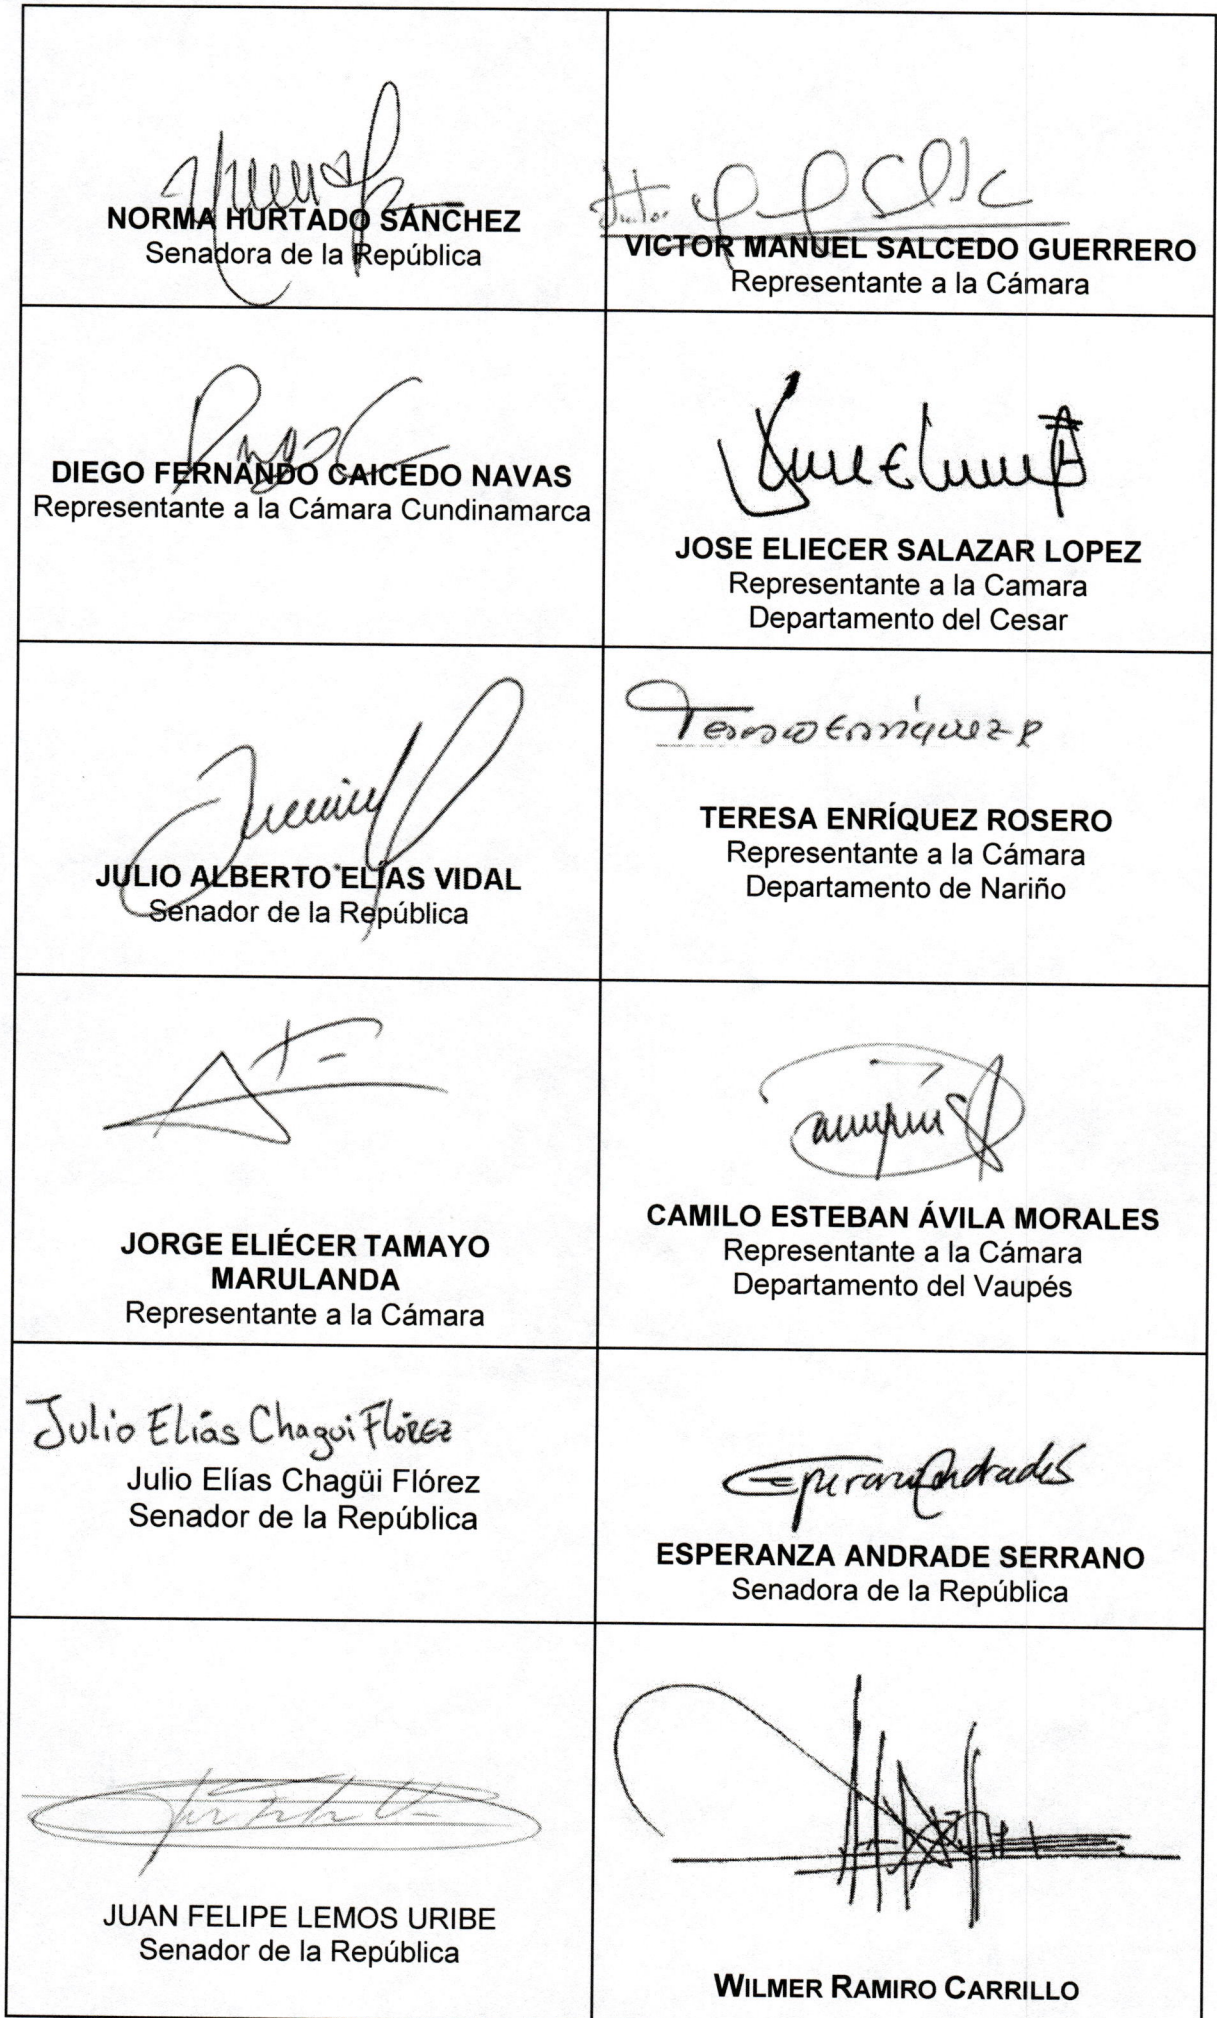 NORMA HURTADO SÁNCHEZ
Senadora de la República
VICTOR MANUEL SALCEDO GUERRERO
Representante a la Cámara
DIEGO FERNANDO CAICEDO NAVAS
Representante a la Cámara Cundinamarca
JOSE ELIECER SALAZAR LOPEZ
Representante a la Camara
Departamento del Cesar
JULIO ALBERTO ELÍAS VIDAL
Senador de la República
Teresa Enríquez R
TERESA ENRÍQUEZ ROSERO
Representante a la Cámara
Departamento de Nariño
JORGE ELIÉCER TAMAYO
MARULANDA
Representante a la Cámara
CAMILO ESTEBAN ÁVILA MORALES
Representante a la Cámara
Departamento del Vaupés
Julio Elías Chagui Flórez
Julio Elías Chagüi Flórez
Senador de la República
ESPERANZA ANDRADE SERRANO
Senadora de la República
JUAN FELIPE LEMOS URIBE
Senador de la República
WILMER RAMIRO CARRILLO